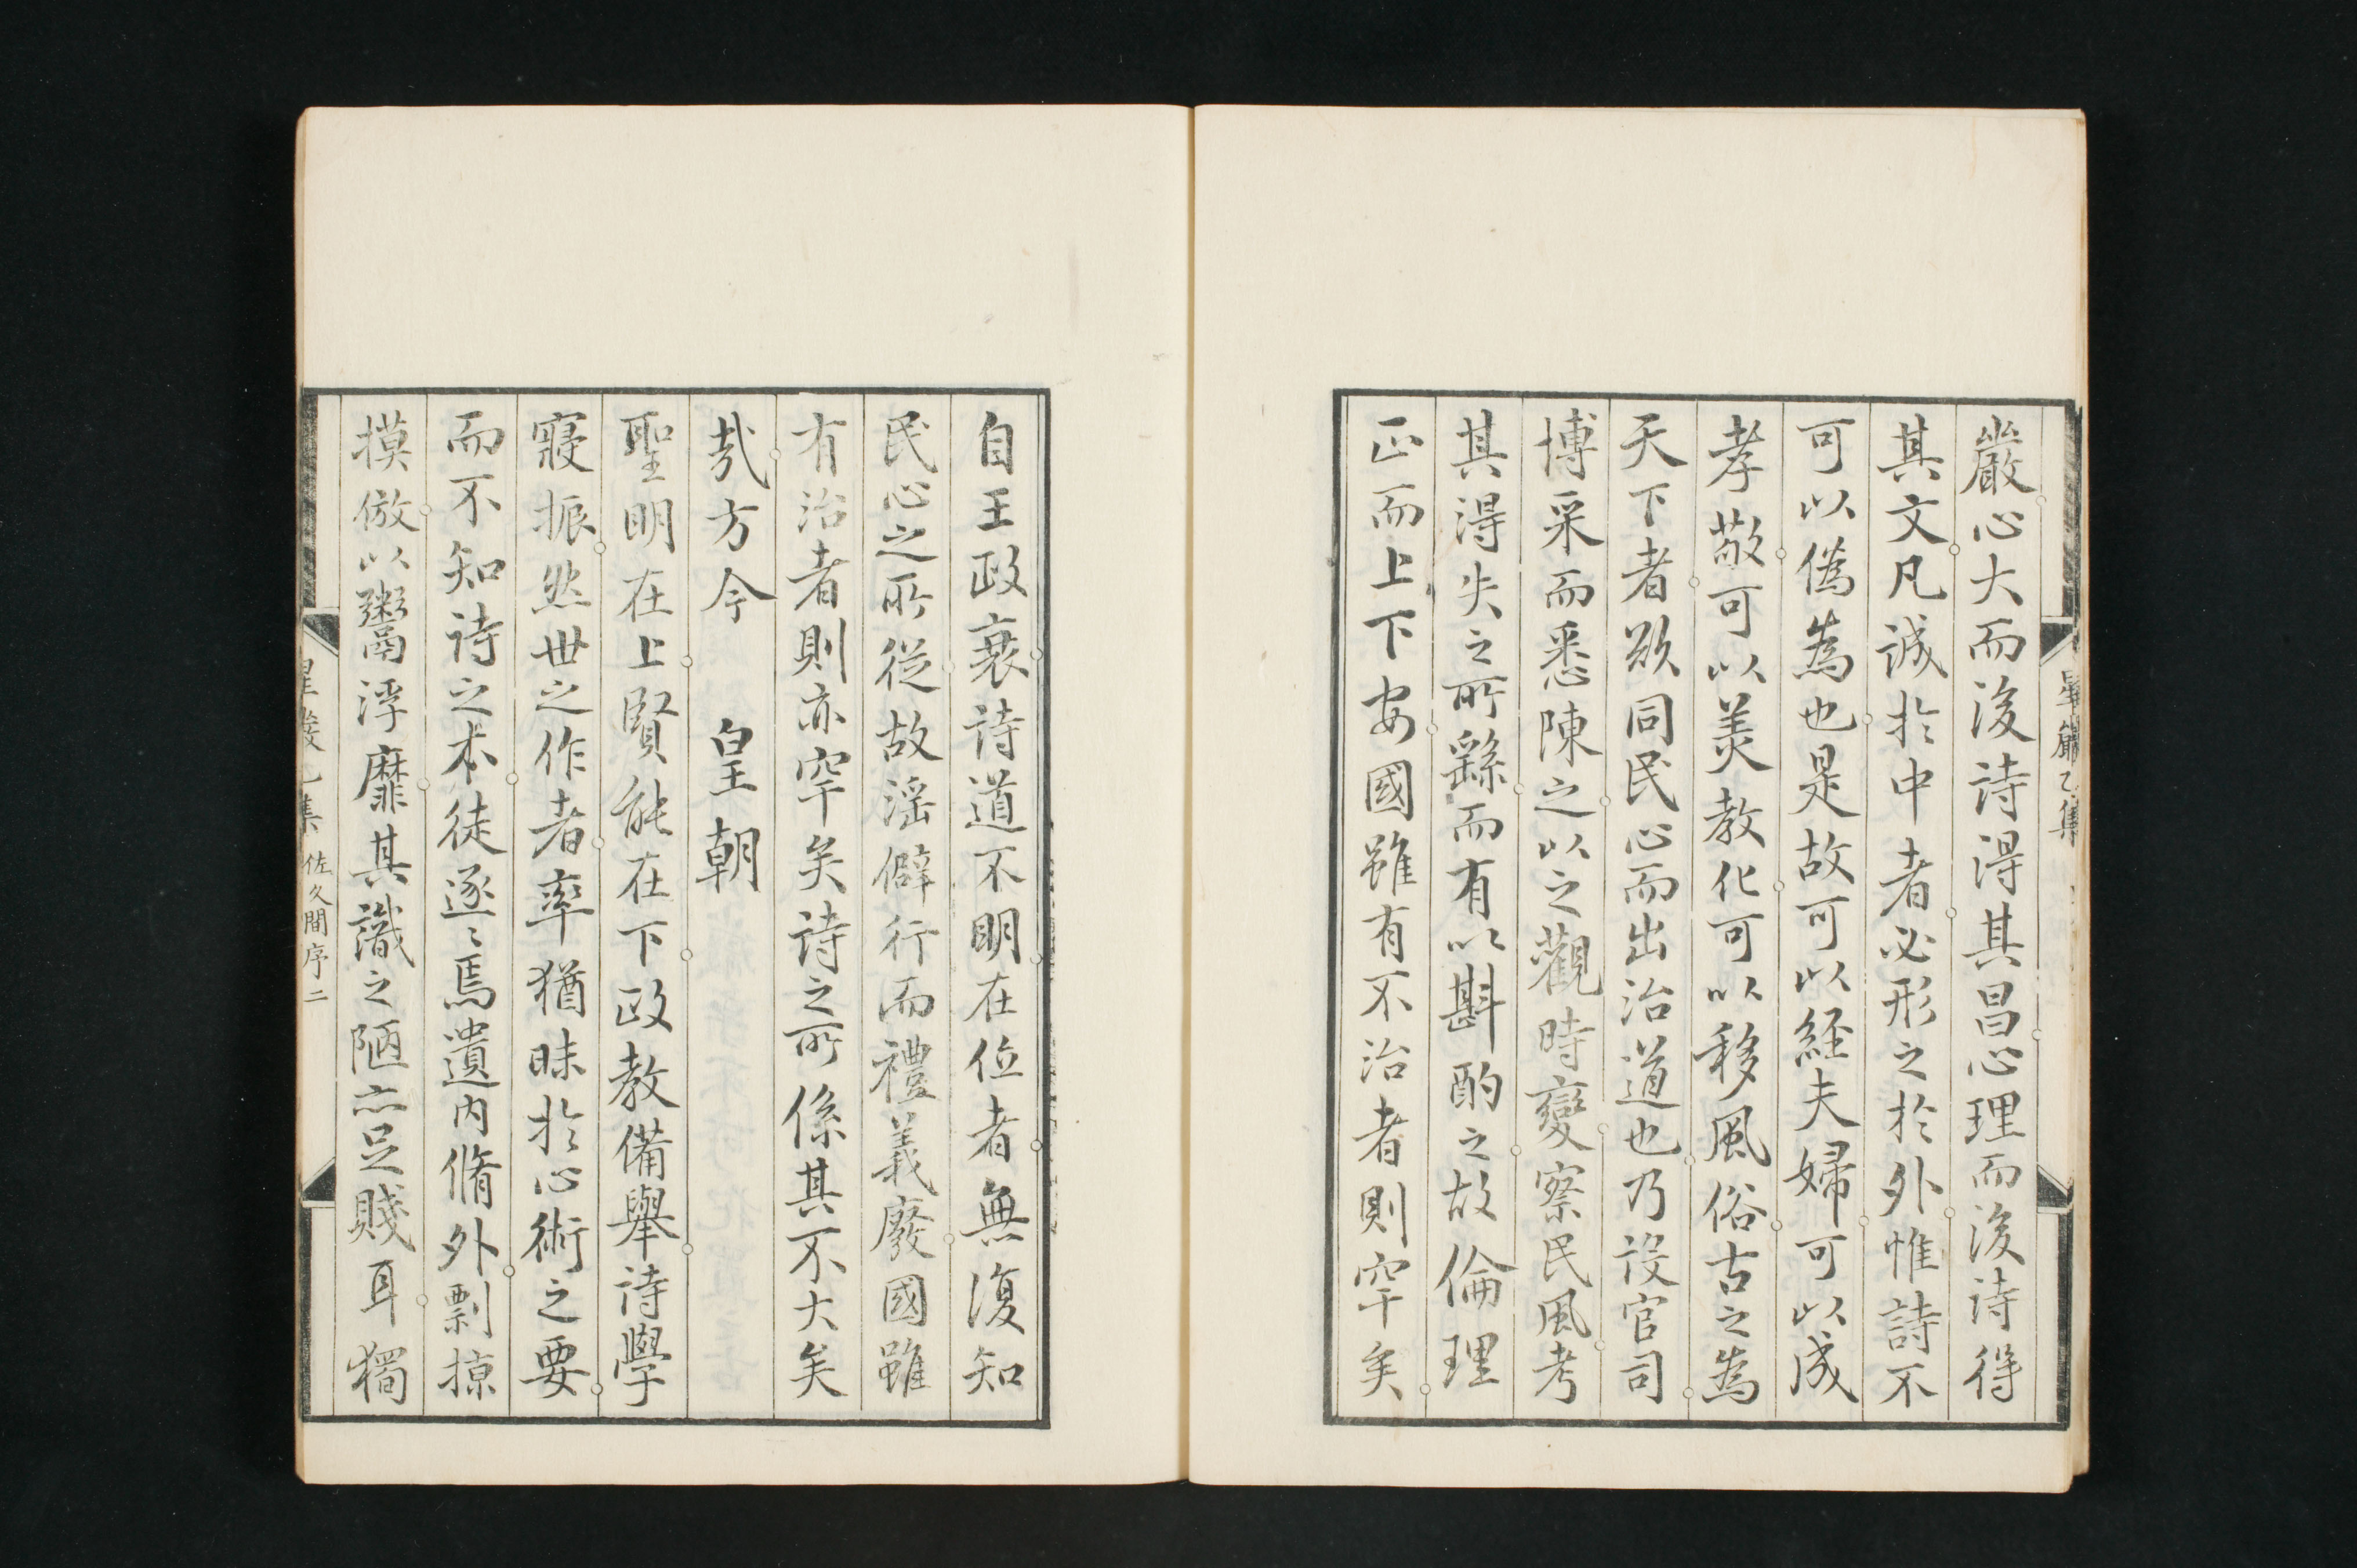 巖心大而後詩得其昌心理而後詩得
其文凡誠於中者必形之於外惟詩不
可以僞為也是故可以経夫婦可以成
孝敬可以美教化可以移風俗古之為
天下者欲同民心而出治道也乃設官司
博采而悉陳之以之觀時變察民風考
其得失之所繇而有以斟酌之故倫理
正而上下安國雖有不治者則罕矣
自王政衰詩道不明在位者無復知
民心之所從故滛僻行而禮義廢國雖
有治者則亦罕矣詩之所係其不大矣
哉方今　皇朝
聖明在上賢能在下政教備舉詩學
寢振然世之作者率猶昧於心術之要
而不知詩之本徒逐〻焉遺内脩外剽掠
摸倣以鬻浮靡其識之陋亦足賤耳獨
星巖乙集 佐久間序 二